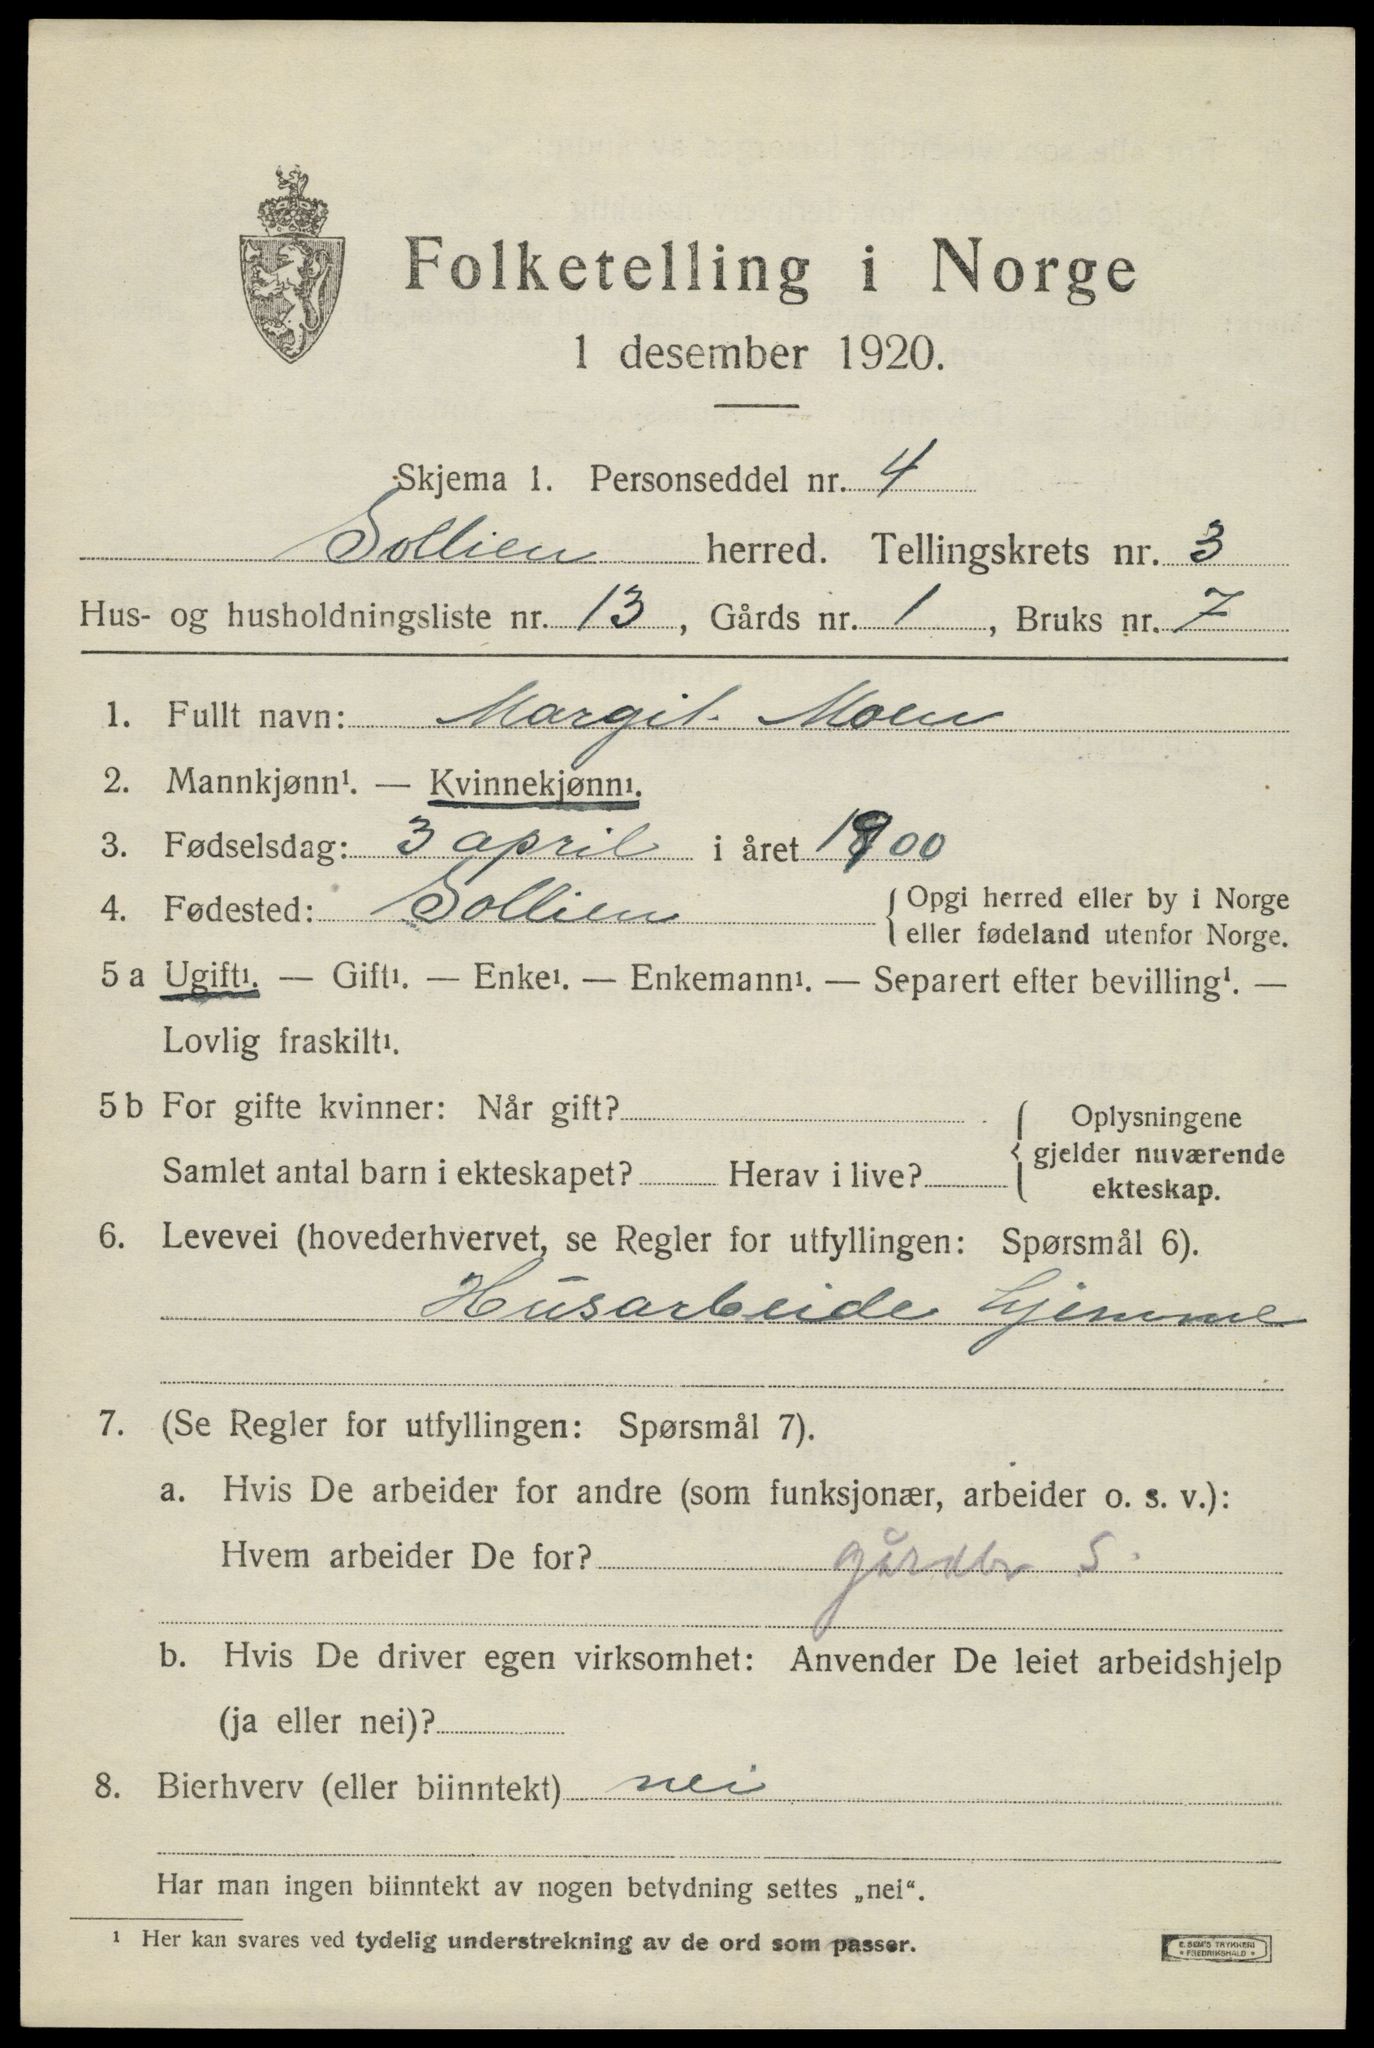 Folketelling i Norge
1 desember 1920.
Skjema 1. Personseddel nr. 4
Sollien herred. Tellingskrets nr. 3
Hus- og husholdningsliste nr. 13, Gårds nr. 1, Bruks nr. 7
1. Fullt navn: Margit Moen
2. Mannkjønn¹. — Kvinnekjønn¹.
3. Fødselsdag: 3 april i året 1900
4. Fødested: Sollien {Opgi herred eller by i Norge
eller fødeland utenfor Norge.
5 a Ugift¹. — Gift¹. — Enke¹. — Enkemann¹. — Separert efter bevilling¹. —
Lovlig fraskilt¹.
5 b For gifte kvinner: Når gift? {Oplysningene
gjelder nuværende
Samlet antal barn i ekteskapet? Herav i live?
ekteskap.
6. Levevei (hovederhvervet, se Regler for utfyllingen: Spørsmål 6).
Husarbeide hjemme
7. (Se Regler for utfyllingen: Spørsmål 7).
a. Hvis De arbeider for andre (som funksjonær, arbeider o. s. v.):
Hvem arbeider De for? gårdbr S.
b. Hvis De driver egen virksomhet: Anvender De leiet arbeidshjelp
(ja eller nei)?
8. Bierhverv (eller biinntekt) nei
Har man ingen biinntekt av nogen betydning settes „nei“.
¹ Her kan svares ved tydelig understrekning av de ord som passer.
E. SEM'S TRYKKERI
* FREDRIKSHALD *